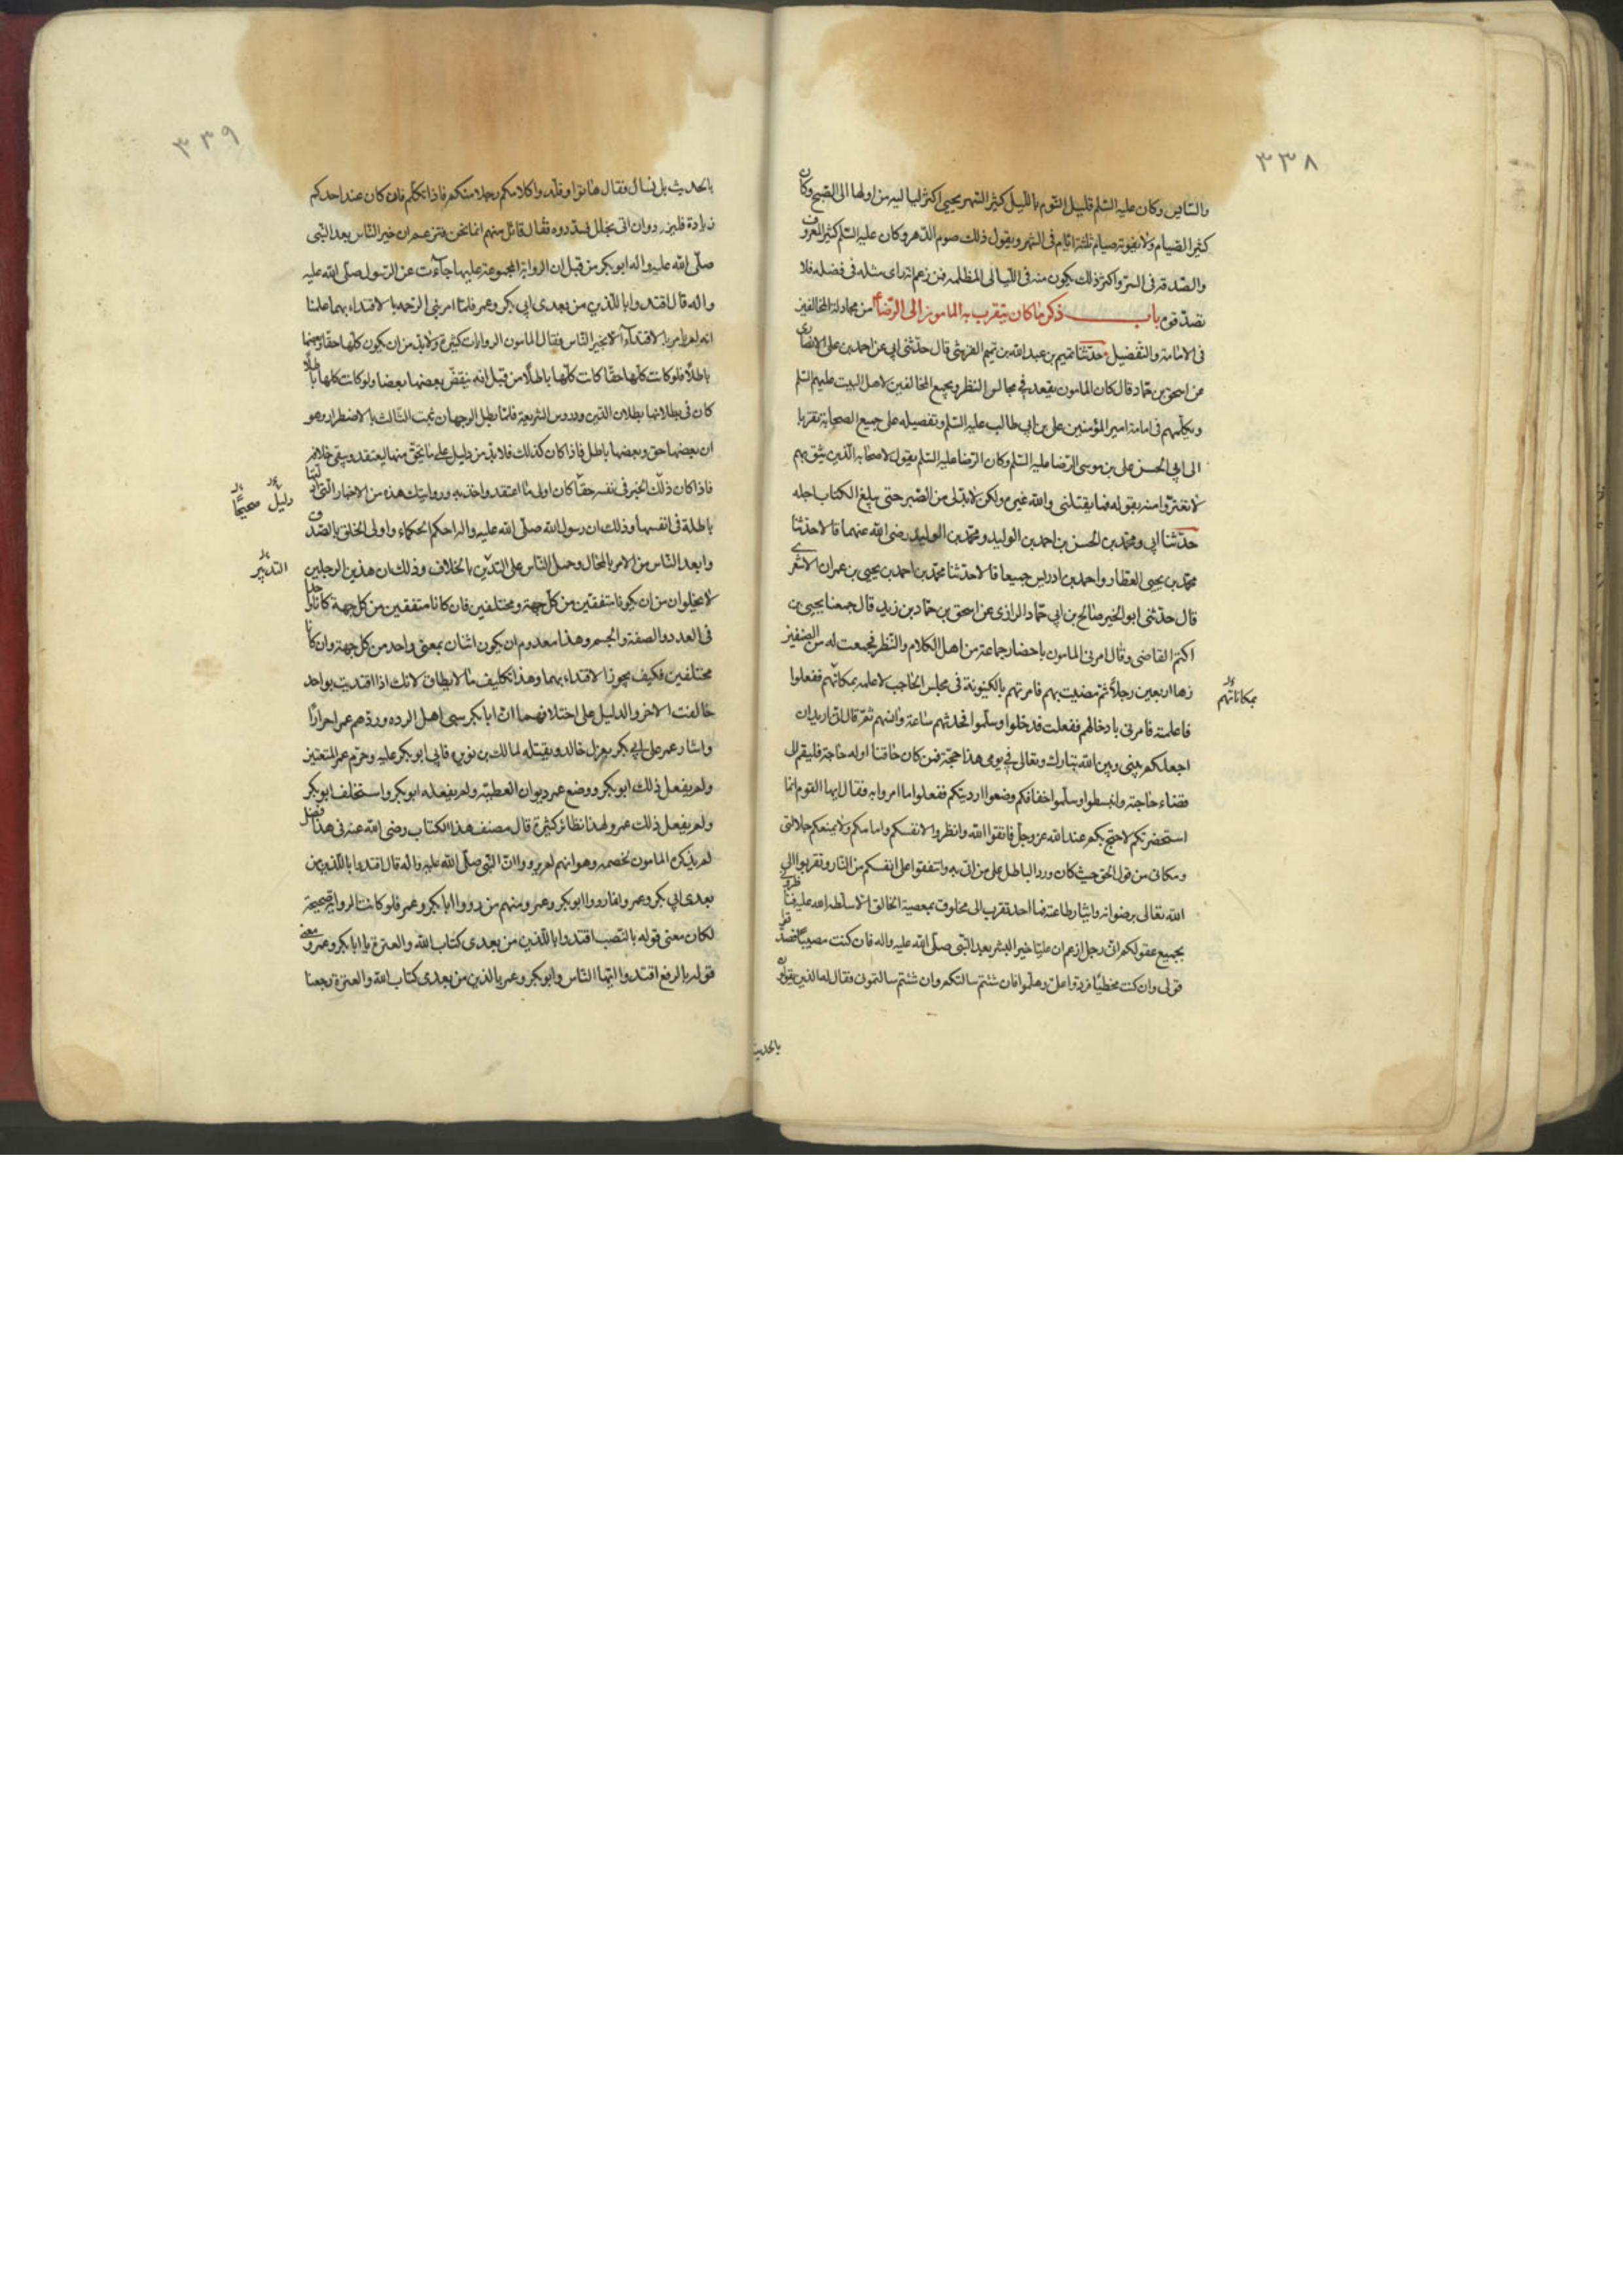 ٣٣٨
والسايس وكان عليه السّلم قليل النّوم بالليل كثير السّهر يحيى اكثر لياليه من اولها الى الصّبح وكان
كثير الصّيام ولا يفوته صيام ثلثة ايّام فى الشّهر ويقول ذلك صوم الدّهر وكان عليه السّلم كثير المعروف
والصّدقة فى السّرّ واكثر ذلك يكون منه فى اللّيالى المظلمه فمن زعم انه راى مثله فى فضله فلا
تصدّقوه باب ذكر ما كان يتقرب به المامون الى الرّضا ع من مجادلة المخالفين
فى الامامة والتّفضيل حدّثنا تميم بن عبد الله بن تميم القرشى قال حدّثنى ابى عن احمد بن على الانصارى
عن اسحق بن حمّاد قال كان المامون يقعد فى مجالس النظر ويجمع المخالفين لاهل البيت عليهم السّلم
ويكلّمهم فى امامة امير المؤمنين على بن ابى طالب عليه السّلم وتفضيله على جميع الصحابة تقربا
الى ابى الحسن على بن موسى الرّضا عليه السّلم وكان الرّضا عليه السّلم يقول لاصحابه الّذين يثق بهم
لا تغترّوا منه بقوله فما يقتلنى والله غيره ولكن لا بدّ لى من الصّبر حتى يبلغ الكتاب اجله
حدّثنا ابى ومحمّد بن الحسن بن احمد بن الوليد رضى الله عنهما قالا حدّثنا
محمّد بن يحيى العطّار واحمد بن ادريس جميعا قالا حدّثنا محمّد بن احمد بن يحيى بن عمران الاشعرى
قال حدّثنى ابو الخير صالح بن ابى حمّاد الرازى عن اسحق بن حمّاد بن زيد قال جمعنا يحيى بن
اكثم القاضى وقال امرنى المامون باحضار جماعة من اهل الكلام والنّظر فجمعت له من الصنفين
زها اربعين رجلاً ثمّ مضيت بهم فامرتهم بالكينونة فى مجلس الحاجب لاعلمه بمكانهم ففعلوا
بمكاناتهم
فاعلمته فامرنى بادخالهم ففعلت فدخلوا وسلّموا فحدثهم ساعة وانسهم ثمّ قال انّى اريد ان
اجعلكم بينى وبين الله تبارك وتعالى فى يومى هذا حجّة فمن كان حاقنا او له حاجة فليقم الى
قضاء حاجته وانبسطوا وسلّوا خفافكم وضعوا ارديتكم ففعلوا ما امروا به فقال ايها القوم انّما
استحضرتكم لاحتج بكم عند الله عز وجل فاتّقوا الله وانظروا لانفسكم وامامكم ولا يمنعكم جلالتى
ومكانى من قول الحق حيث كان وردّ الباطل على من اتى به واشفقوا على انفسكم من النّار وتقربوا الى
الله تعالى برضوانه وايثار طاعته فما احد تقرب الى مخلوق بمعصية الخالق الّا سلّطه الله عليه فناظرونى
بجميع عقولكم انّى رجل ازعم ان عليّا خير البشر بعد النّبى صلّى الله عليه واله فان كنت مصيبا فصدّقوا
قولى وان كنت مخطئا فردّوا علىّ وهلمّوا فان شئتم سالتكم وان شئتم سالتمونى فقال له الذين يقولون
بالحديث
٣٣٩
بالحديث بل نسال فقال هاتوا وقلّدوا كلامكم رجلا منكم فاذا تكلّم فان كان عند احدكم
زيادة فليزد وان اتى بخلل فسدّدوه فقال قائل منهم انما نحن فنزعم ان خير النّاس بعد النّبى
صلّى الله عليه واله ابو بكر من قبل ان الرواية المجمع عليها جآءت عن الرّسول صلّى الله عليه
واله قال اقتدوا بالّذين من بعدى ابى بكر وعمر فلمّا امر نبى الرّحمة بالاقتداء بهما علمنا
انه لم يامر بالاقتداء الّا بخير النّاس فقال المامون الروايات كثيرة ولا بدّ من ان يكون كلّها حقّا او كلّها
باطلاً فلو كانت كلّها حقّا كانت كلّها باطلاً من قبل انه ينقض بعضها بعضا ولو كانت كلها باطلاً
كان فى بطلانها بطلان الدّين ودروس الشّريعة فلمّا بطل الوجهان ثبت الثّالث بالاضطرار وهو
ان بعضها حق وبعضها باطل فاذا كان كذلك فلا بدّ من دليل على ما يحق منها ليعتقد وينفى خلافه
فاذا كان دليل الخبر فى نفسه حقّا كان اولى ما اعتقد واخذ به وروايتك هذه من الاخبار الّتى ادلّتها
دليل صحيحًا
باطلة فى انفسها وذلك ان رسول الله صلّى الله عليه واله احكم الحكماء واولى الخلق بالصّدق
وابعد النّاس من الامر بالمحال وحمل النّاس على التديّن بالخلاف وذلك ان هذين الرجلين
التدبير
لا يخلوان من ان يكونا متفقين من كلّ جهة او مختلفين فان كانا متفقين من كل جهة كانا واحدا
فى العدد والصفة والجسم وهذا معدوم ان يكون اثنان بمعنى واحد من كل جهة وان كانا
مختلفين فكيف يجوز الاقتداء بهما وهذا تكليف ما لا يطاق لانك اذا اقتديت بواحد
خالفت الاخر والدليل على اختلافهما انّ ابا بكر سبى اهل الرده وردّهم عمر احرارًا
واشار عمر على ابى بكر بعزل خالد وبقتله لمالك بن نويرة فابى ابو بكر عليه وحرّم عمر المتعتين
ولم يفعل ذلك ابو بكر ووضع عمر ديوان العطيّه ولم يفعله ابو بكر واستخلف ابو بكر
ولم يفعل ذلك عمر ولهذا نظائر كثيرة قال مصنف هذا الكتاب رضى الله عنه فى هذا فصل
لم يذكره المامون لخصمه وهو انهم لم يرووا انّ النّبى صلّى الله عليه واله قال اقتدوا بالّذين من
بعدى ابى بكر وعمر وانما رووا ابو بكر وعمر ومنهم من رووا ابا بكر وعمر فلو كانت الرواية صحيحة
لكان معنى قوله بالنّصب اقتدوا بالّذين من بعدى كتاب الله والعترة يا ابا بكر وعمر ومعنى
قوله بالرفع اقتدوا ايّها النّاس وابو بكر وعمر بالذين من بعدى كتاب الله والعترة رجعنا